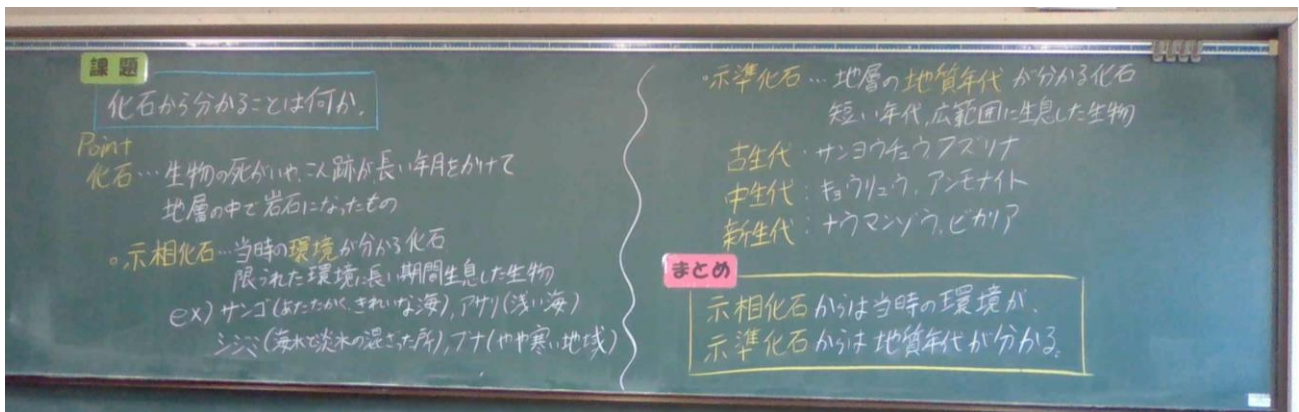 課題
化石から分かることは何か。
Point
化石…生物の死がいや、こん跡が長い年月をかけて
地層の中で岩石になったもの
。示相化石…当時の環境が分かる化石
限られた環境に長い期間生息した生物
ex) サンゴ(あたたかく、きれいな海), アサリ(浅い海)
シジミ(海水で淡水の混ざった所), ブナ(やや寒い地域)
。示準化石…地層の地質年代が分かる化石
短い年代、広範囲に生息した生物
古生代:サンヨウチュウ、フズリナ
中生代:キョウリュウ、アンモナイト
新生代:ナウマンゾウ、ビカリア
まとめ
示相化石からは当時の環境が、
示準化石からは地質年代が分かる。